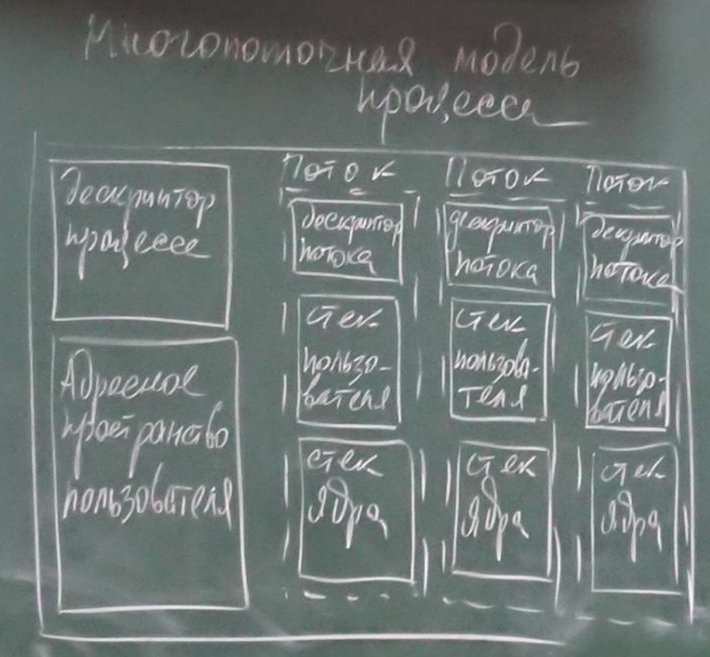 Многопоточная модель
процесса
дескриптор
процесса
Адресное
пространство
пользователя
Поток
дескриптор
потока
стек
пользо-
вателя
стек
ядра
Поток
дескриптор
потока
стек
пользова-
теля
стек
ядра
Поток
дескриптор
потока
стек
пользо-
вателя
стек
ядра